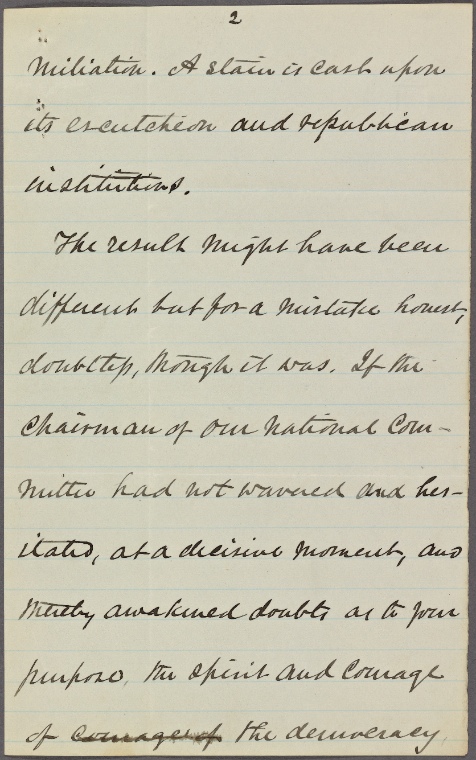 2
miliation. A stain is cast upon
its escutcheon and republican
institutions.
The result might have been
different but for a mistake honest,
doubtless, though it was. If the
Chairman of our National Com-
mittee had not wavered and hes-
itated, at a decisive moment, and
thereby awakened doubts as to your
purpose, the spirit and courage
of courage of the democracy,